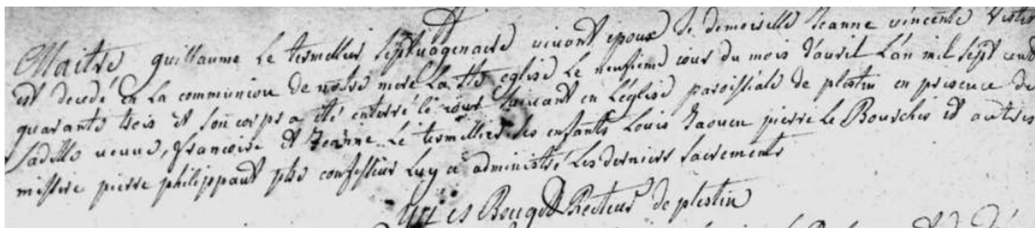 Maitre guillaume Le termellier septuagenaire vivant epoux de demoiselle Jeanne vincente
est decedé en la communion de nostre mere La Ste eglise Le neufieme jour du mois d'avril L'an mil sept cent
quarante trois et son corps a été enterré le jour suivant en L'eglise paroissiale de plestin en presence de
Laditte veuve, francoise et Jeanne Le termellier ses enfants Louis Jaouen pierre le Bourchis et autres
missire pierre philippant pbre confesseur Luy a administré Les derniers sacrements
Recteur de plestin